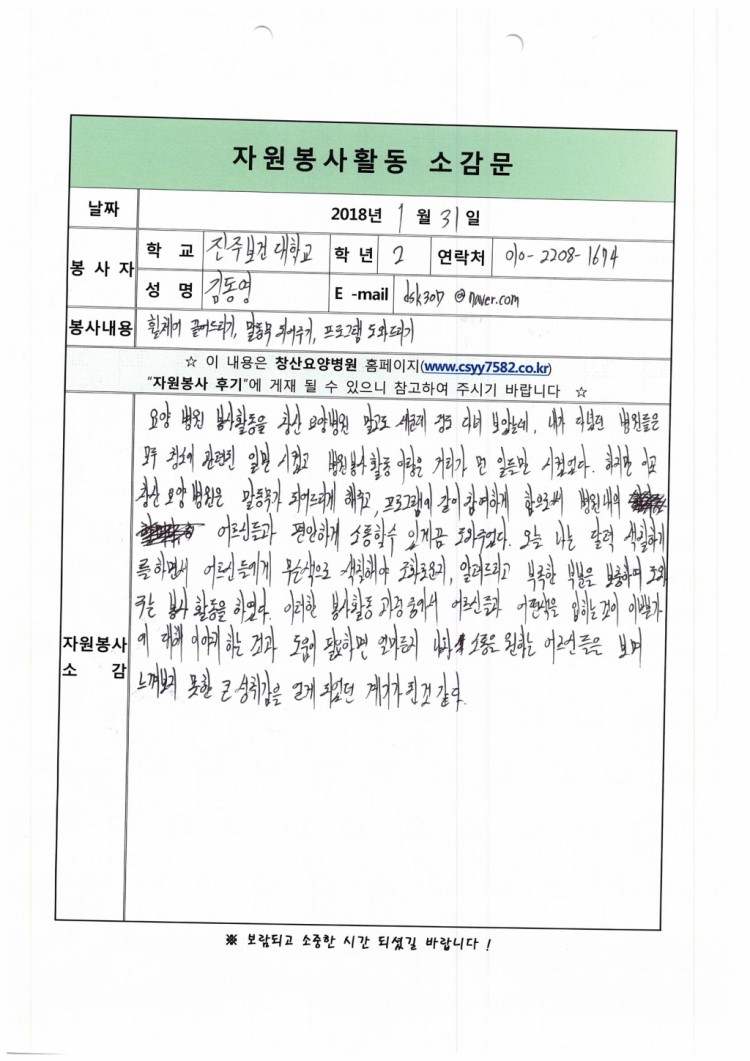 자원봉사활동 소감문
날짜 2018년 1 월 31 일
봉 사 자 학 교 진주보건대학교 학 년 2 연락처 010-2208-1674
성 명 김동영 E -mail dsk307 @naver.com
봉사내용 휠체어 끌어드리기, 말동무 되어주기, 프로그램 도와드리기
☆ 이 내용은 창산요양병원 홈페이지(www.csyy7582.co.kr)
"자원봉사 후기"에 게재 될 수 있으니 참고하여 주시기 바랍니다 ☆
자원봉사 소 감
요양 병원 봉사활동을 창산 요양병원 말고도 세군데 정도 다녀 보았는데, 내가 다녔던 병원들은
모두 청소에 관련된 일만 시켰고 병원봉사활동 이랑은 거리가 먼 일들만 시켰었다. 하지만 이곳
창산 요양 병원은 말동무가 되어드리게 해주고, 프로그램에 같이 참여하게 함으로써 병원내의
어르신들과 편안하게 소통할수 있게끔 도와주었다. 오늘 나는 달력 색칠하기
를 하면서 어르신들에게 무슨색으로 색칠해야 조화로운지, 알려드리고 부족한 부분을 보충하며 도와
주는 봉사 활동을 하였다. 이러한 봉사활동 과정 중에서 어르신들과 어떤색을 입히는것이 이쁠가
에 대해 이야기 하는 것과 도움이 필요하면 얼마든지 소통을 원하는 어르신들을 보며
느껴보지 못한 큰 성취감을 얻게 되었던 계기가 된것 같다.
※ 보람되고 소중한 시간 되셨길 바랍니다 !